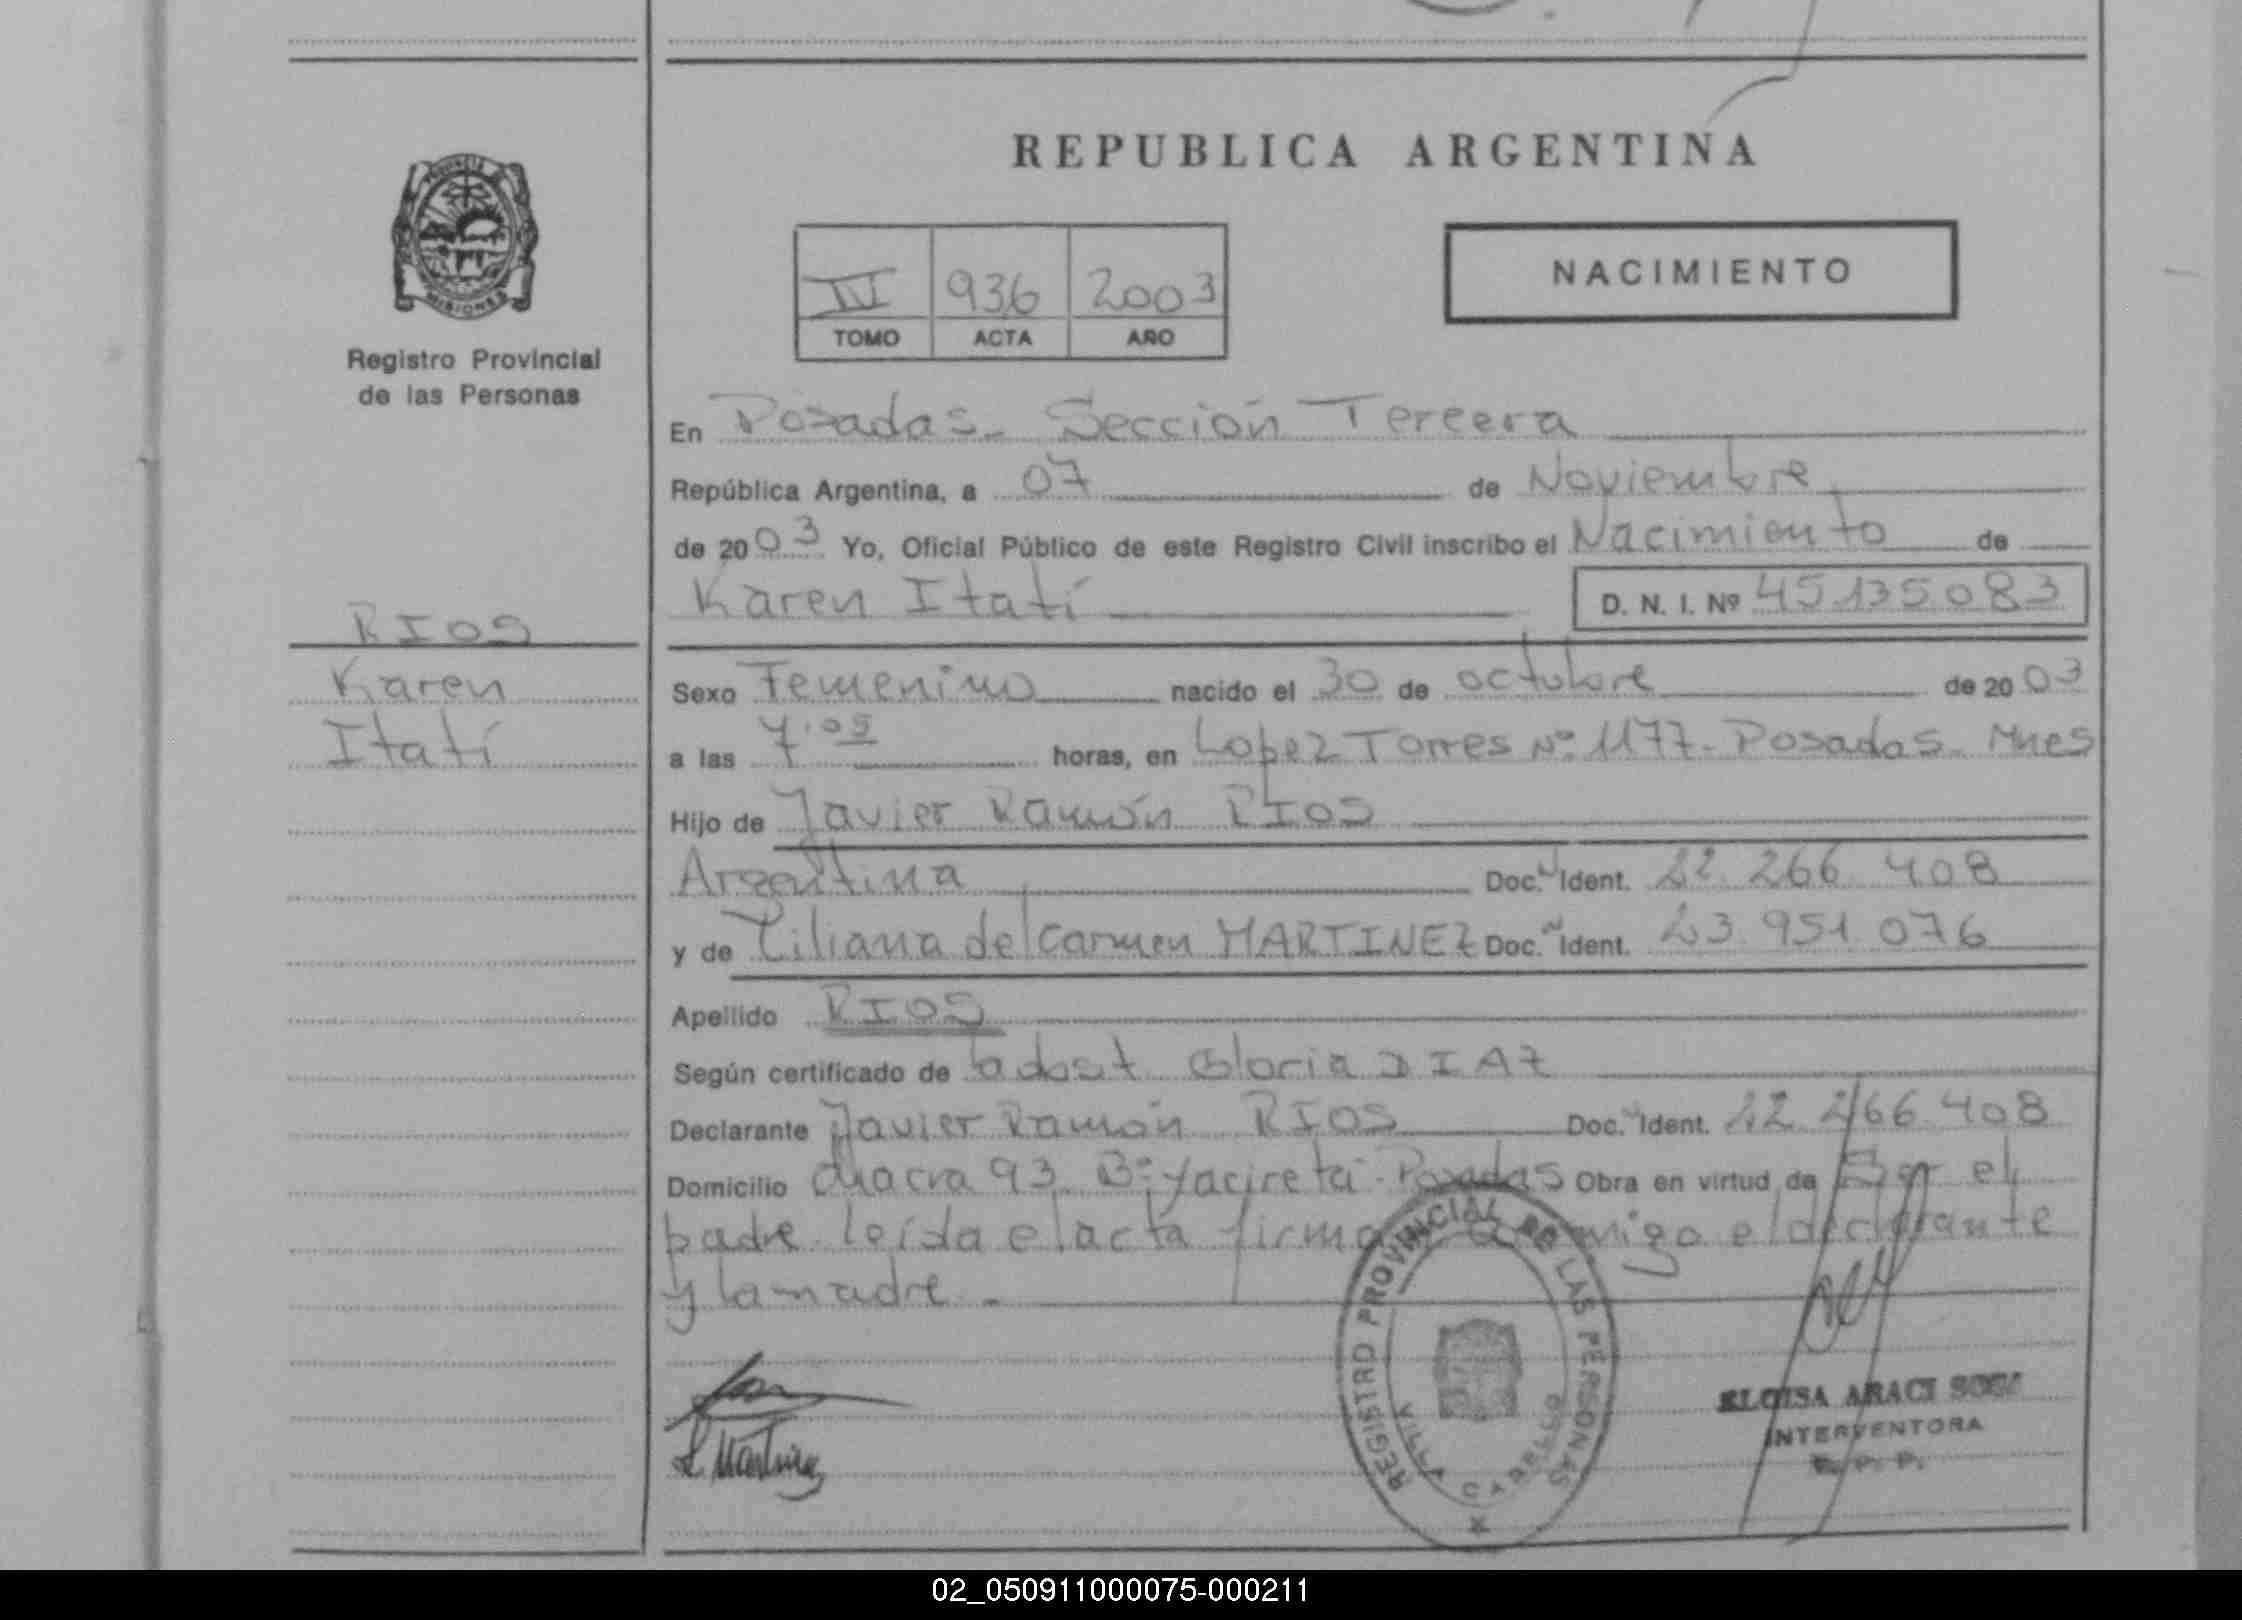 REPUBLICA ARGENTINA
PROVINCIA DE
MISIONES
Registro Provincial
de las Personas
IV 936 2003
TOMO ACTA AÑO
NACIMIENTO
En Posadas - Sección Tercera
República Argentina, a 07 de Noviembre
de 2003 Yo, Oficial Público de este Registro Civil inscribo el Nacimiento de
Karen Itatí D. N. I. Nº 45.135.083
RIOS
Karen
Itatí
Sexo Femenino nacido el 30 de octubre de 2003
a las 7.05 horas, en Lopez Torres Nº 1177 - Posadas - Mnes
Hijo de Javier Ramón RIOS
Argentina Doc. Ident. 22.266.408
y de Liliana del Carmen MARTINEZ Doc. Ident. 23.951.076
Apellido RIOS
Según certificado de la obst. Gloria DIAZ
Declarante Javier Ramón RIOS Doc. Ident. 22.266.408
Domicilio Chacra 93 Bº Yacireta - Posadas Obra en virtud de Ser el
padre. leída el acta firma conmigo el declarante
y la madre.-
L. Martinez
REGISTRO PROVINCIAL DE LAS PERSONAS
VILLA CABELLO
ELOISA ARACI SOSA
INTERVENTORA
R. P. P.
02_050911000075-000211